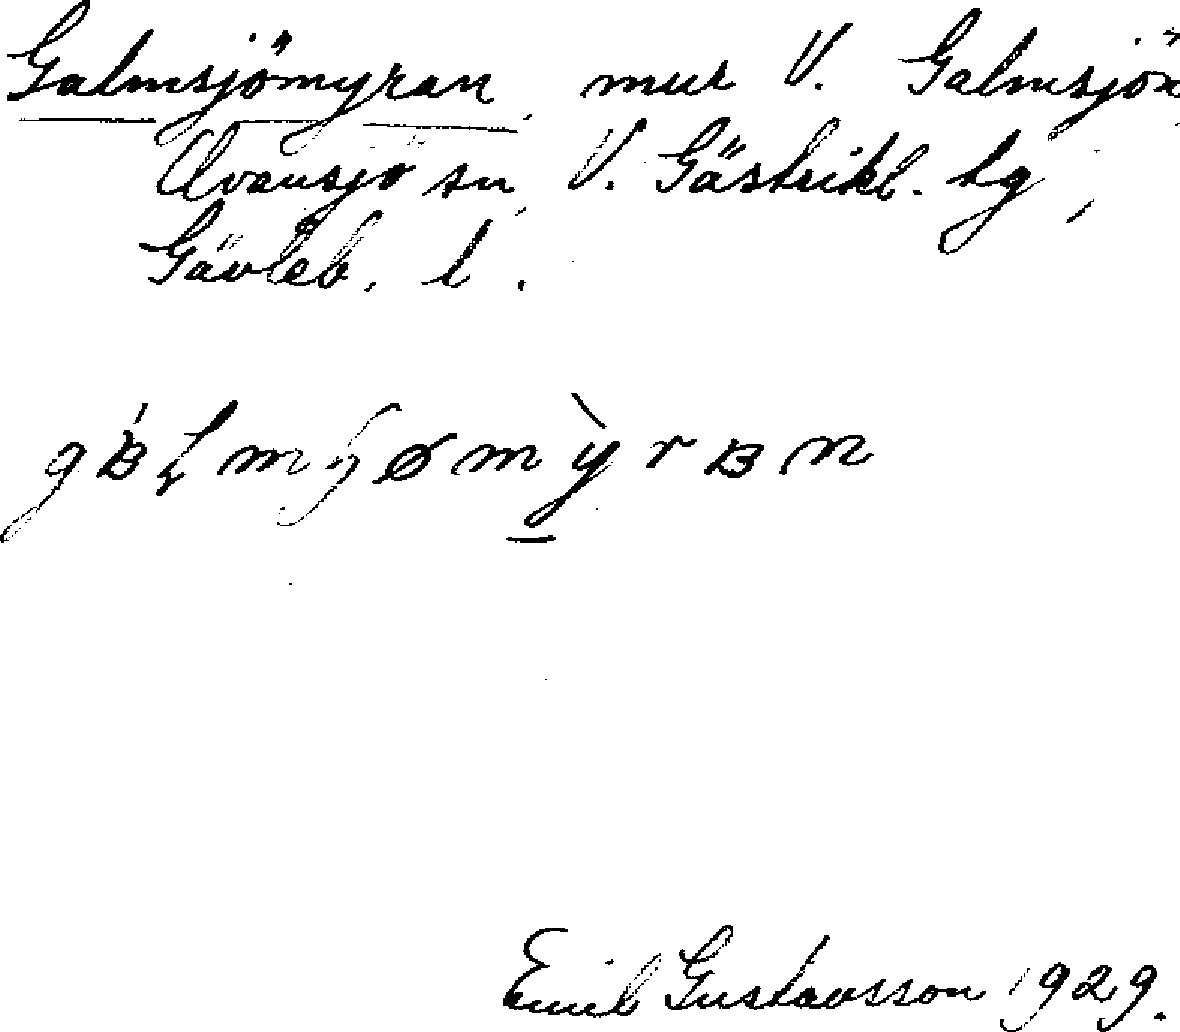 Galmsjömyran, mur V. Galmsjön
Ovansjö sn, V. Gästrikl. tg,
Gävleb. l.
Emil Gustavsson 1929.